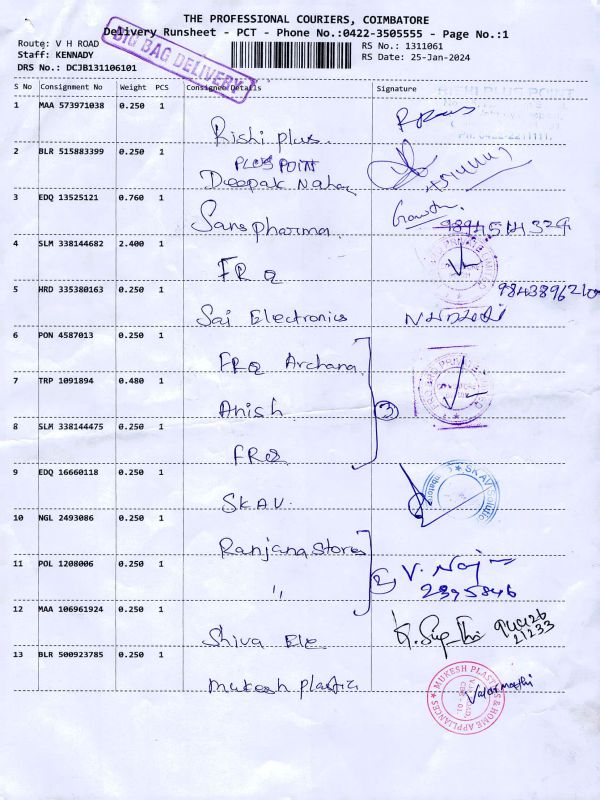 THE PROFESSIONAL COURIERS, COIMBATORE
Delivery Runsheet - PCT - Phone No.:0422-3505555 - Page No.:1
Route: V H ROAD
RS No.: 1311061
Staff: KENNADY
RS Date: 25-Jan-2024
DRS No.: DCJB131106101
BIG BAG DELIVERY
S No Consignment No Weight PCS Consignee Details Signature
1 MAA 573971038 0.250 1 Rishi plus
RISHI PLUS POINT
PH: 0422-2211111,
2 BLR 515883399 0.250 1 PLUS POINT
Deepak Nahar
3 EDQ 13525121 0.760 1 Sans pharma
4 SLM 338144682 2.400 1 FRQ
5 HRD 335380163 0.250 1 Sai Electronics
6 PON 4587013 0.250 1 FRQ Archana
7 TRP 1091894 0.480 1 Anish
3
8 SLM 338144475 0.250 1 FRQ
9 EDQ 16660118 0.250 1 SKAV
SKAV
10 NGL 2493086 0.250 1 Ranjana Stores
11 POL 1208006 0.250 1 "
2
2395846
12 MAA 106961924 0.250 1 Shiva Ele
94426
21233
13 BLR 500923785 0.250 1 Mukesh plastic
MUKESH PLASTICS & HOME APPLIANCES
Valarmathi